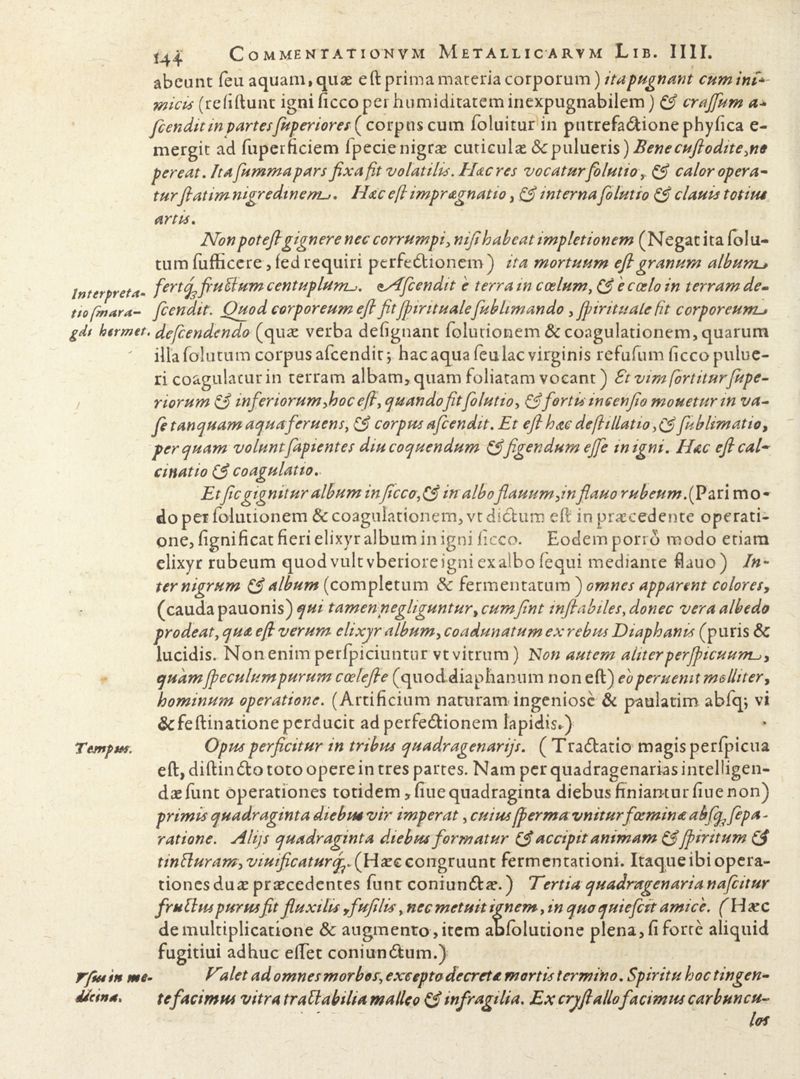 144 COMMENTATIONVM METALLICARVM LIB. IIII.
abeunt ſeu aquam, quæ eſt prima materia corporum) ita pugnant cum ini-
micis (reſiſtunt igni ſicco per humiditatem inexpugnabilem) & craſſum a-
ſcendit in partes ſuperiores (corpus cum ſoluitur in putrefactione phyſica e-
mergit ad ſuperficiem ſpecie nigræ cuticulæ & pulueris) Bene cuſtodite, ne
pereat. Ita ſumma pars fixa fit volatilis. Hæc res vocatur ſolutio, & calor opera-
tur ſtatim nigredinem. Hæc eſt imprægnatio, & interna ſolutio & clauis totius
artis.
Non poteſt gignere nec corrumpi, niſi habeat impletionem (Negat ita ſolu-
tum ſufficere, ſed requiri perfectionem) ita mortuum eſt granum album
Interpreta- fertq́; fructum centuplum. Aſcendit è terra in cœlum, & è cœlo in terram de-
tio ſmara- ſcendit. Quod corporeum eſt fit ſpirituale ſublimando, ſpirituale fit corporeum
gdi hermet. deſcendendo (quæ verba deſignant ſolutionem & coagulationem, quarum
illa ſolutum corpus aſcendit; hac aqua ſeu lac virginis refuſum ſicco pulue-
ri coagulatur in terram albam, quam foliatam vocant) Et vim ſortitur ſupe-
riorum & inferiorum, hoc eſt, quando fit ſolutio, & fortis incenſio mouetur in va-
ſe tanquam aqua feruens, & corpus aſcendit. Et eſt hæc deſtillatio, & ſublimatio,
per quam volunt ſapientes diu coquendum & figendum eſſe in igni. Hæc eſt cal-
cinatio & coagulatio.
Et ſic gignitur album in ſicco, & in albo flauum, in flauo rubeum. (Pari mo-
do per ſolutionem & coagulationem, vt dictum eſt in præcedente operati-
one, ſignificat fieri elixyr album in igni ſicco. Eodem porrò modo etiam
elixyr rubeum quod vult vberiore igni ex albo ſequi mediante flauo) In-
ter nigrum & album (completum & fermentatum) omnes apparent colores,
(cauda pauonis) qui tamen negliguntur, cum ſint inſtabiles, donec vera albedo
prodeat, quæ eſt verum elixyr album, coadunatum ex rebus Diaphanis (puris &
lucidis. Non enim perſpiciuntur vt vitrum) Non autem aliter perſpicuum,
quàm ſpeculum purum cœleſte (quod diaphanum non eſt) eò peruenit molliter,
hominum operatione. (Artificium naturam ingeniosè & paulatim abſq; vi
& feſtinatione perducit ad perfectionem lapidis.)
Tempus. Opus perficitur in tribus quadragenarijs. (Tractatio magis perſpicua
eſt, diſtincto toto opere in tres partes. Nam per quadragenarias intelligen-
dæ ſunt operationes totidem, ſiue quadraginta diebus finiantur ſiue non)
primis quadraginta diebus vir imperat, cuius ſperma vnitur fœminæ abſq; ſepa-
ratione. Alijs quadraginta diebus formatur & accipit animam & ſpiritum &
tincturam, viuificaturq́;. (Hæc congruunt fermentationi. Itaque ibi opera-
tiones duæ præcedentes ſunt coniunctæ.) Tertia quadragenaria naſcitur
fructus purus fit fluxilis, fuſilis, nec metuit ignem, in quo quieſcit amicè. (Hæc
de multiplicatione & augmento, item abſolutione plena, ſi fortè aliquid
fugitiui adhuc eſſet coniunctum.)
Vſus in me- Valet ad omnes morbos, excepto decretæ mortis termino. Spiritu hoc tingen-
dicina. te facimus vitra tractabilia malleo & infragilia. Ex cryſtallo facimus carbuncu-
los